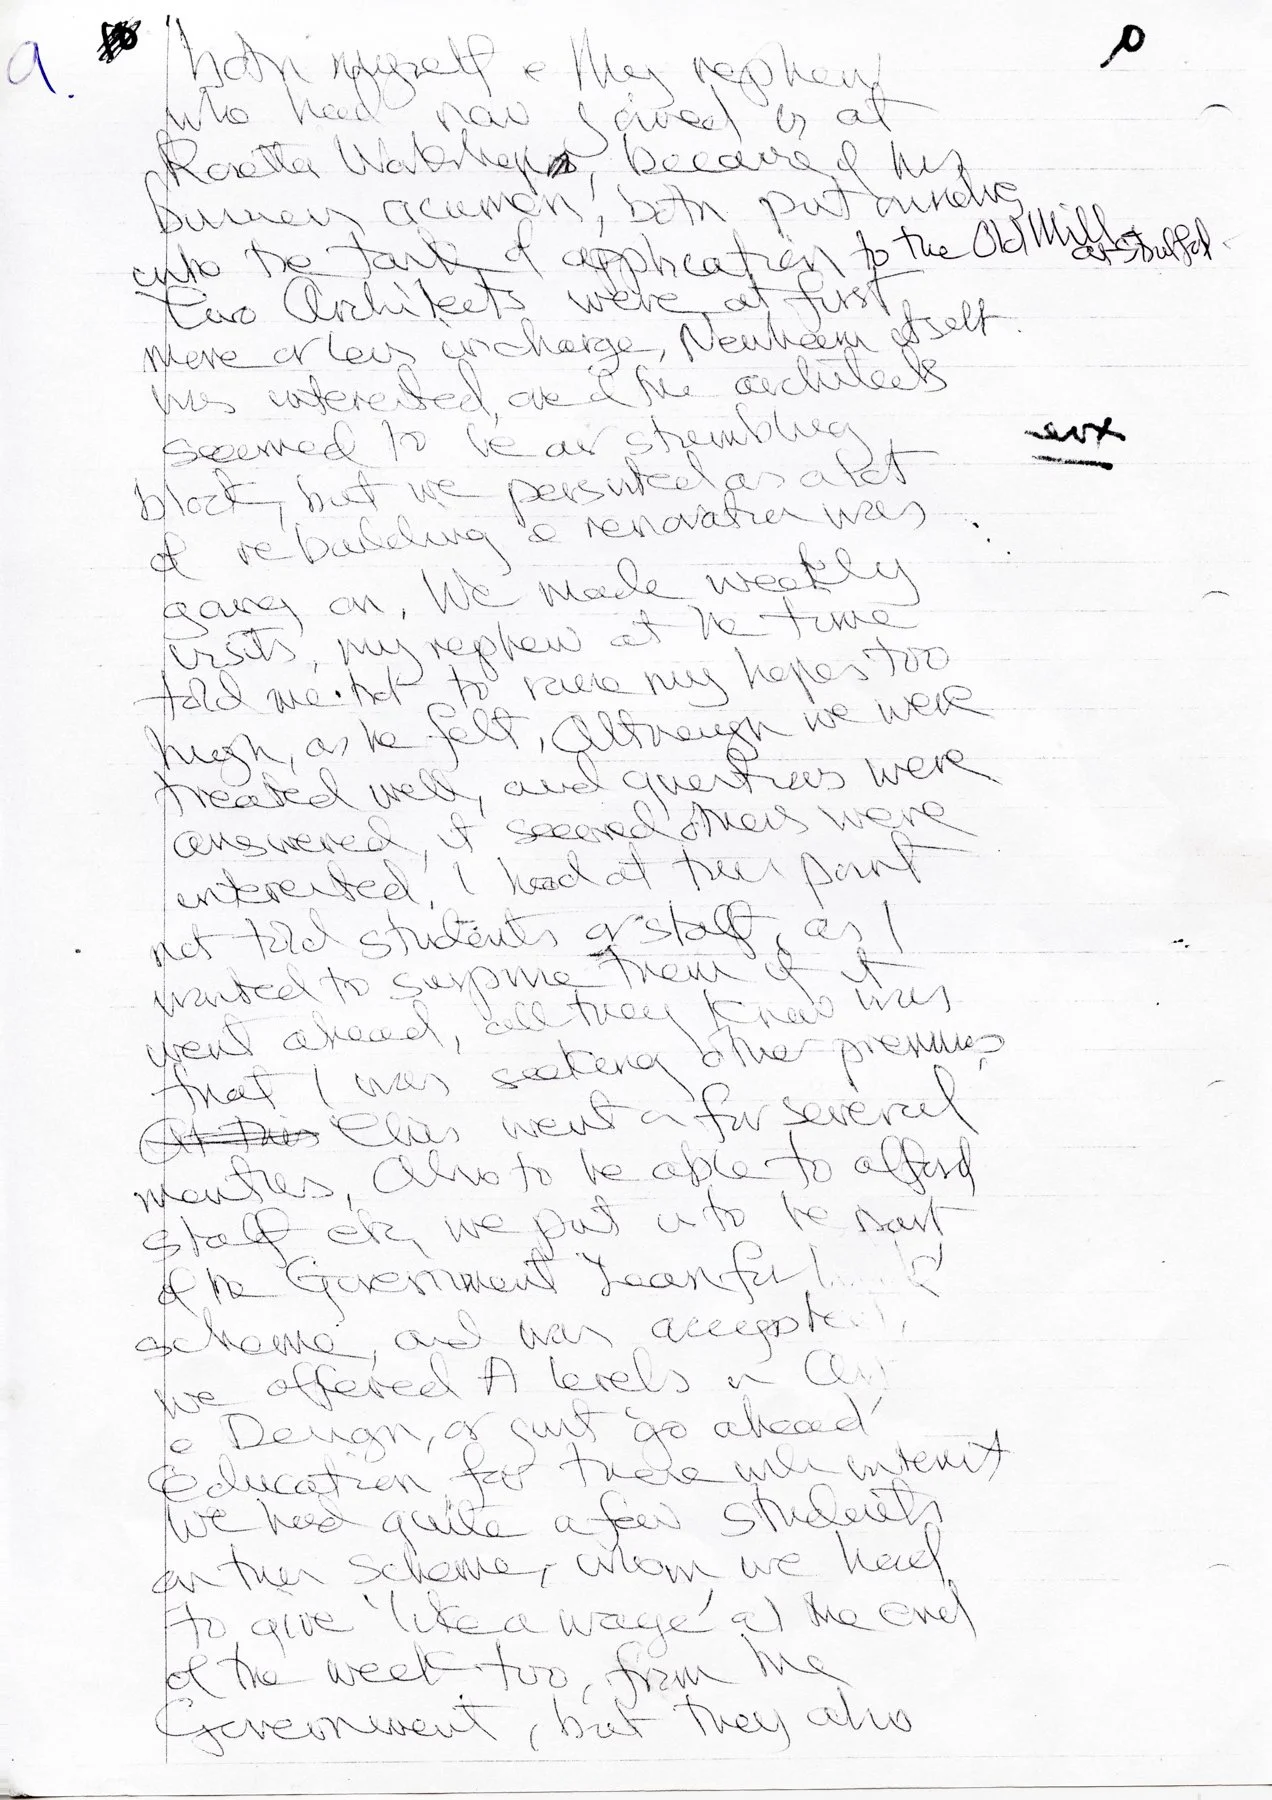 9.
both myself & My nephew
who had now joined us at
Rosetta Workshops, because of his
business acumen, both put ourselves
into the task of application to the Old Mill at Stratford
Two Architects were at first
more or less in charge, Newham itself
was interested, and the architects
seemed to be a stumbling
block, but we persisted as a lot
of rebuilding & renovation was
going on, We made weekly
visits, my nephew at the time
told me not to raise my hopes too
high, as he felt, Although we were
treated well, and questions were
answered, it seemed others were
interested, I had at this point
not told students or staff, as I
wanted to surprise them if it
went ahead, all they knew was
that I was seeking other premises
At this This went on for several
months, Also to be able to afford
staff etc, we put in to be part
of the Government Loan for
scheme, and was accepted,
we offered A levels in Art
& Design, or just 'go ahead'
Education for those with interest
We had quite a few students
on this scheme, whom we had
to give 'like a wage' at the end
of the week too, from the
Government, but they also